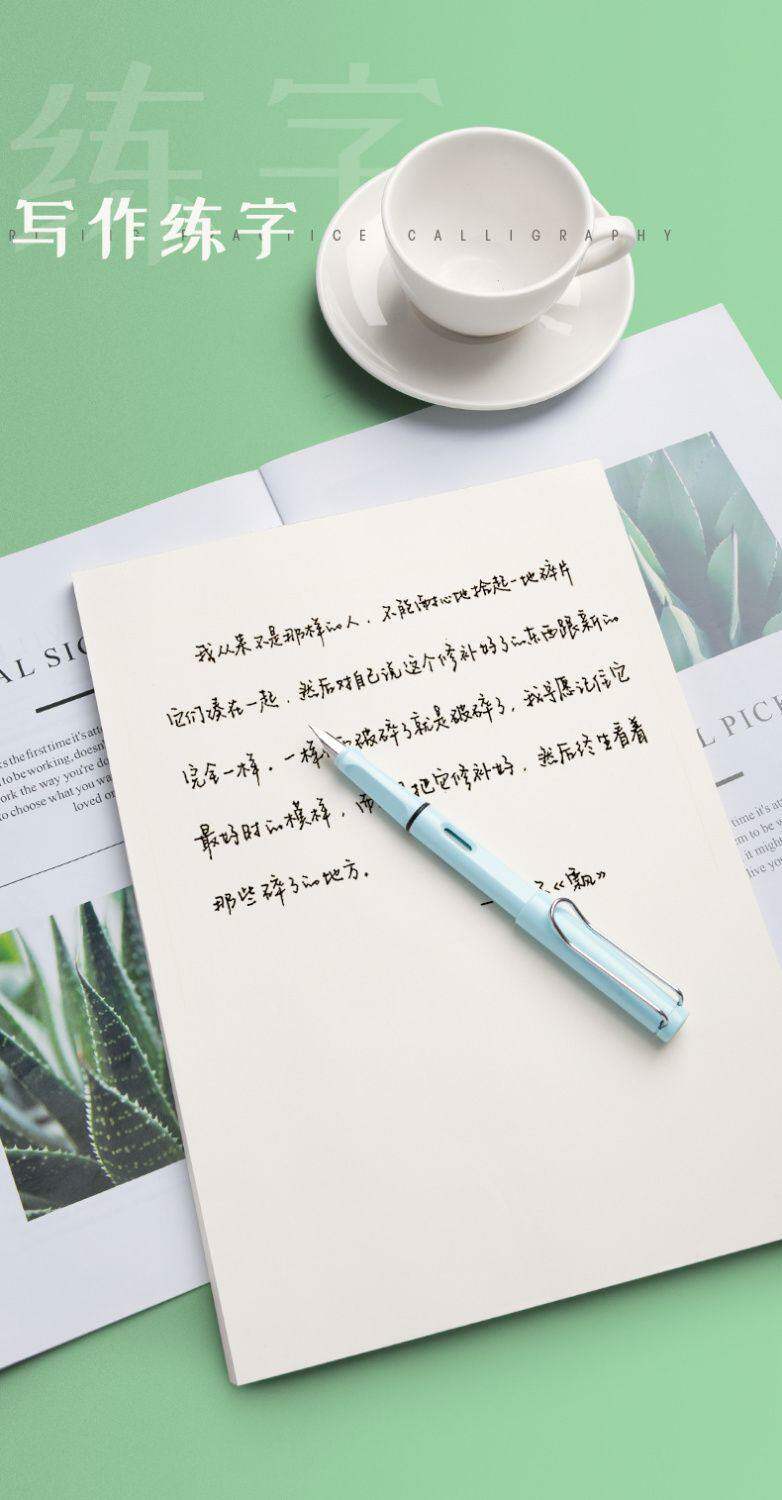 练字
写作练字
PRACTICE CALLIGRAPHY
我从来不是那样的人，不能耐心地拾起一地碎片
它们凑在一起，然后对自己说这个修补好了的东西跟新的
完全一样。一样 破碎了就是破碎了，我宁愿记住它
最好时的模样，而 把它修补好，然后终生看着
那些碎了的地方。
《飘》
AL SI
the first time it's
to be working, doesn'
work the way you're do
to choose what you wa
loved on
L PICK
time it's at
em to be w
it might
live you